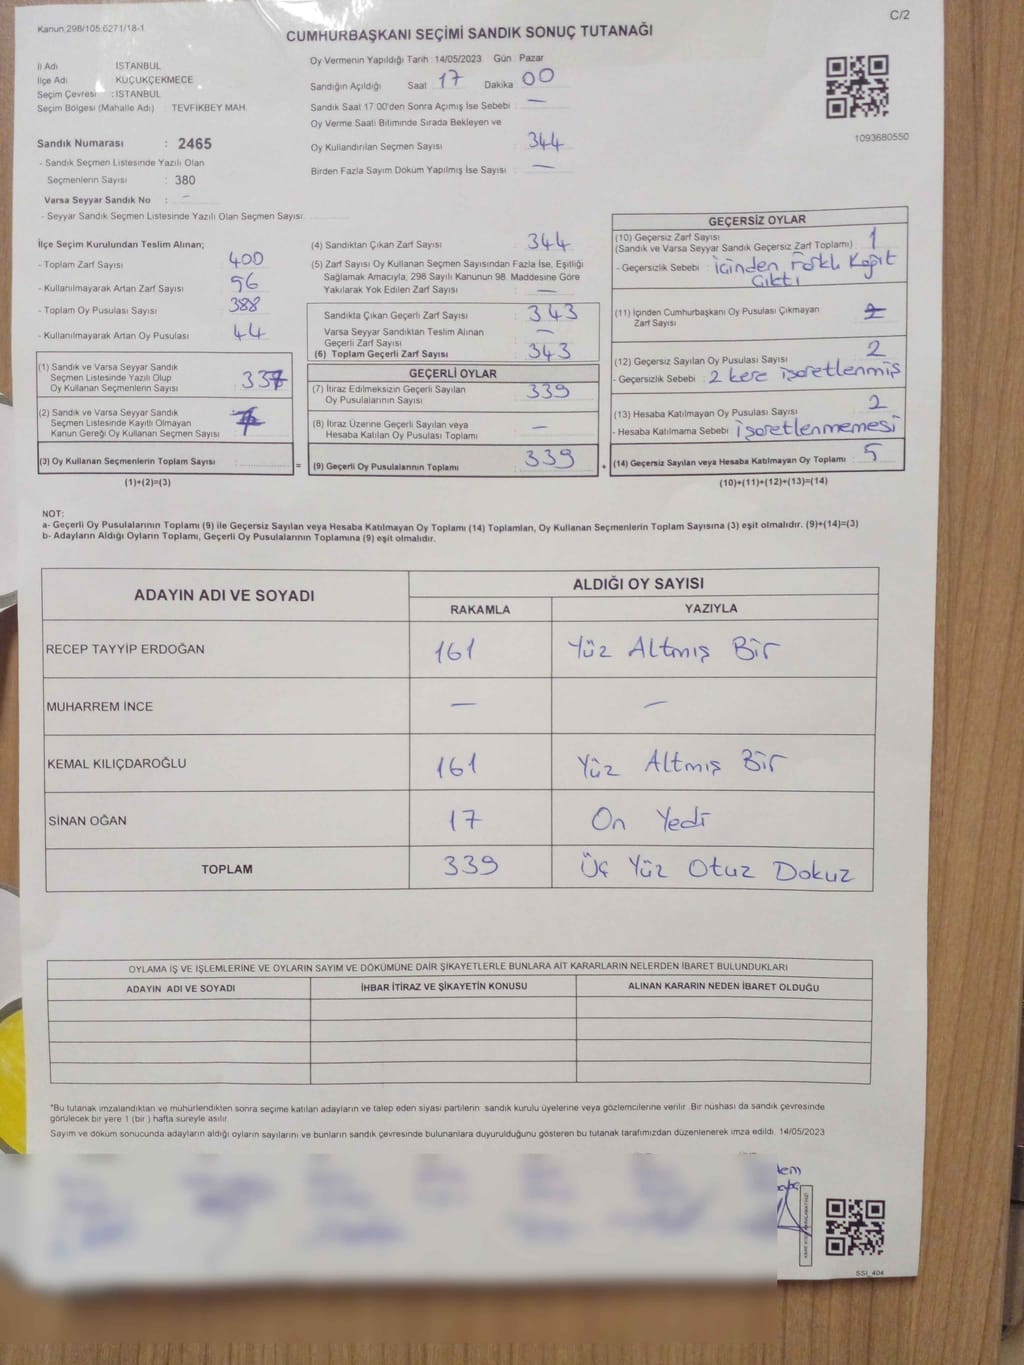 Kanun:298/105,6271/18-1
C/2
CUMHURBAŞKANI SEÇİMİ SANDIK SONUÇ TUTANAĞI
İl Adı : İSTANBUL
İlçe Adı : KÜÇÜKÇEKMECE
Seçim Çevresi : İSTANBUL
Seçim Bölgesi (Mahalle Adı) : TEVFİKBEY MAH.
Sandık Numarası : 2465
- Sandık Seçmen Listesinde Yazılı Olan
Seçmenlerin Sayısı : 380
Varsa Seyyar Sandık No : -
- Seyyar Sandık Seçmen Listesinde Yazılı Olan Seçmen Sayısı:
Oy Vermenin Yapıldığı Tarih : 14/05/2023 Gün : Pazar
Sandığın Açıldığı Saat 17 Dakika 00
Sandık Saat 17:00'den Sonra Açımış İse Sebebi : —
Oy Verme Saati Bitiminde Sırada Bekleyen ve
Oy Kullandırılan Seçmen Sayısı : 344
Birden Fazla Sayım Döküm Yapılmış İse Sayısı : —
1093680550
İlçe Seçim Kurulundan Teslim Alınan;
- Toplam Zarf Sayısı : 400
- Kullanılmayarak Artan Zarf Sayısı : 56
- Toplam Oy Pusulası Sayısı : 388
- Kullanılmayarak Artan Oy Pusulası : 44
(1) Sandık ve Varsa Seyyar Sandık
Seçmen Listesinde Yazılı Olup
Oy Kullanan Seçmenlerin Sayısı : 337
(2) Sandık ve Varsa Seyyar Sandık
Seçmen Listesinde Kayıtlı Olmayan
Kanun Gereği Oy Kullanan Seçmen Sayısı :
(3) Oy Kullanan Seçmenlerin Toplam Sayısı :
(1)+(2)=(3)
(4) Sandıktan Çıkan Zarf Sayısı : 344
(5) Zarf Sayısı Oy Kullanan Seçmen Sayısından Fazla İse, Eşitliği
Sağlamak Amacıyla, 298 Sayılı Kanunun 98. Maddesine Göre
Yakılarak Yok Edilen Zarf Sayısı : —
Sandıkta Çıkan Geçerli Zarf Sayısı : 343
Varsa Seyyar Sandıktan Teslim Alınan
Geçerli Zarf Sayısı : —
(6) Toplam Geçerli Zarf Sayısı : 343
GEÇERLİ OYLAR
(7) İtiraz Edilmeksizin Geçerli Sayılan
Oy Pusulalarının Sayısı : 339
(8) İtiraz Üzerine Geçerli Sayılan veya
Hesaba Katılan Oy Pusulası Toplamı : —
= (9) Geçerli Oy Pusulalarının Toplamı : 339 +
GEÇERSİZ OYLAR
(10) Geçersiz Zarf Sayısı
(Sandık ve Varsa Seyyar Sandık Geçersiz Zarf Toplamı) : 1
- Geçersizlik Sebebi : içinden farklı Kağıt
Çıktı
(11) İçinden Cumhurbaşkanı Oy Pusulası Çıkmayan
Zarf Sayısı :
(12) Geçersiz Sayılan Oy Pusulası Sayısı : 2
- Geçersizlik Sebebi : 2 kere işaretlenmiş
(13) Hesaba Katılmayan Oy Pusulası Sayısı : 2
- Hesaba Katılmama Sebebi : işaretlenmemesi
(14) Geçersiz Sayılan veya Hesaba Katılmayan Oy Toplamı : 5
(10)+(11)+(12)+(13)=(14)
NOT:
a- Geçerli Oy Pusulalarının Toplamı (9) ile Geçersiz Sayılan veya Hesaba Katılmayan Oy Toplamı (14) Toplamları, Oy Kullanan Seçmenlerin Toplam Sayısına (3) eşit olmalıdır. (9)+(14)=(3)
b- Adayların Aldığı Oyların Toplamı, Geçerli Oy Pusulalarının Toplamına (9) eşit olmalıdır.
ADAYIN ADI VE SOYADI
ALDIĞI OY SAYISI
RAKAMLA YAZIYLA
RECEP TAYYİP ERDOĞAN 161 Yüz Altmış Bir
MUHARREM İNCE — —
KEMAL KILIÇDAROĞLU 161 Yüz Altmış Bir
SİNAN OĞAN 17 On Yedi
TOPLAM 339 Üç Yüz Otuz Dokuz
OYLAMA İŞ VE İŞLEMLERİNE VE OYLARIN SAYIM VE DÖKÜMÜNE DAİR ŞİKAYETLERLE BUNLARA AİT KARARLARIN NELERDEN İBARET BULUNDUKLARI
ADAYIN ADI VE SOYADI İHBAR İTİRAZ VE ŞİKAYETİN KONUSU ALINAN KARARIN NEDEN İBARET OLDUĞU
*Bu tutanak imzalandıktan ve mühürlendikten sonra seçime katılan adayların ve talep eden siyasi partilerin sandık kurulu üyelerine veya gözlemcilerine verilir. Bir nüshası da sandık çevresinde
görülecek bir yere 1 (bir) hafta süreyle asılır.
Sayım ve döküm sonucunda adayların aldığı oyların sayılarını ve bunların sandık çevresinde bulunanlara duyurulduğunu gösteren bu tutanak tarafımızdan düzenlenerek imza edildi. 14/05/2023
SSI_404